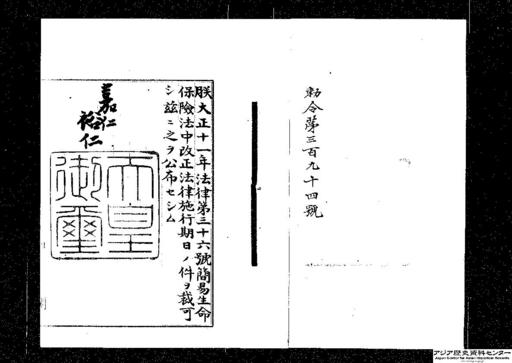 勅令第三百九十四號
朕大正十一年法律第三十六號簡易生命
保險法中改正法律施行期日ノ件ヲ裁可
シ茲ニ之ヲ公布セシム
嘉仁
裕仁
天皇
御璽
アジア歴史資料センター
Japan Center for Asian Historical Records